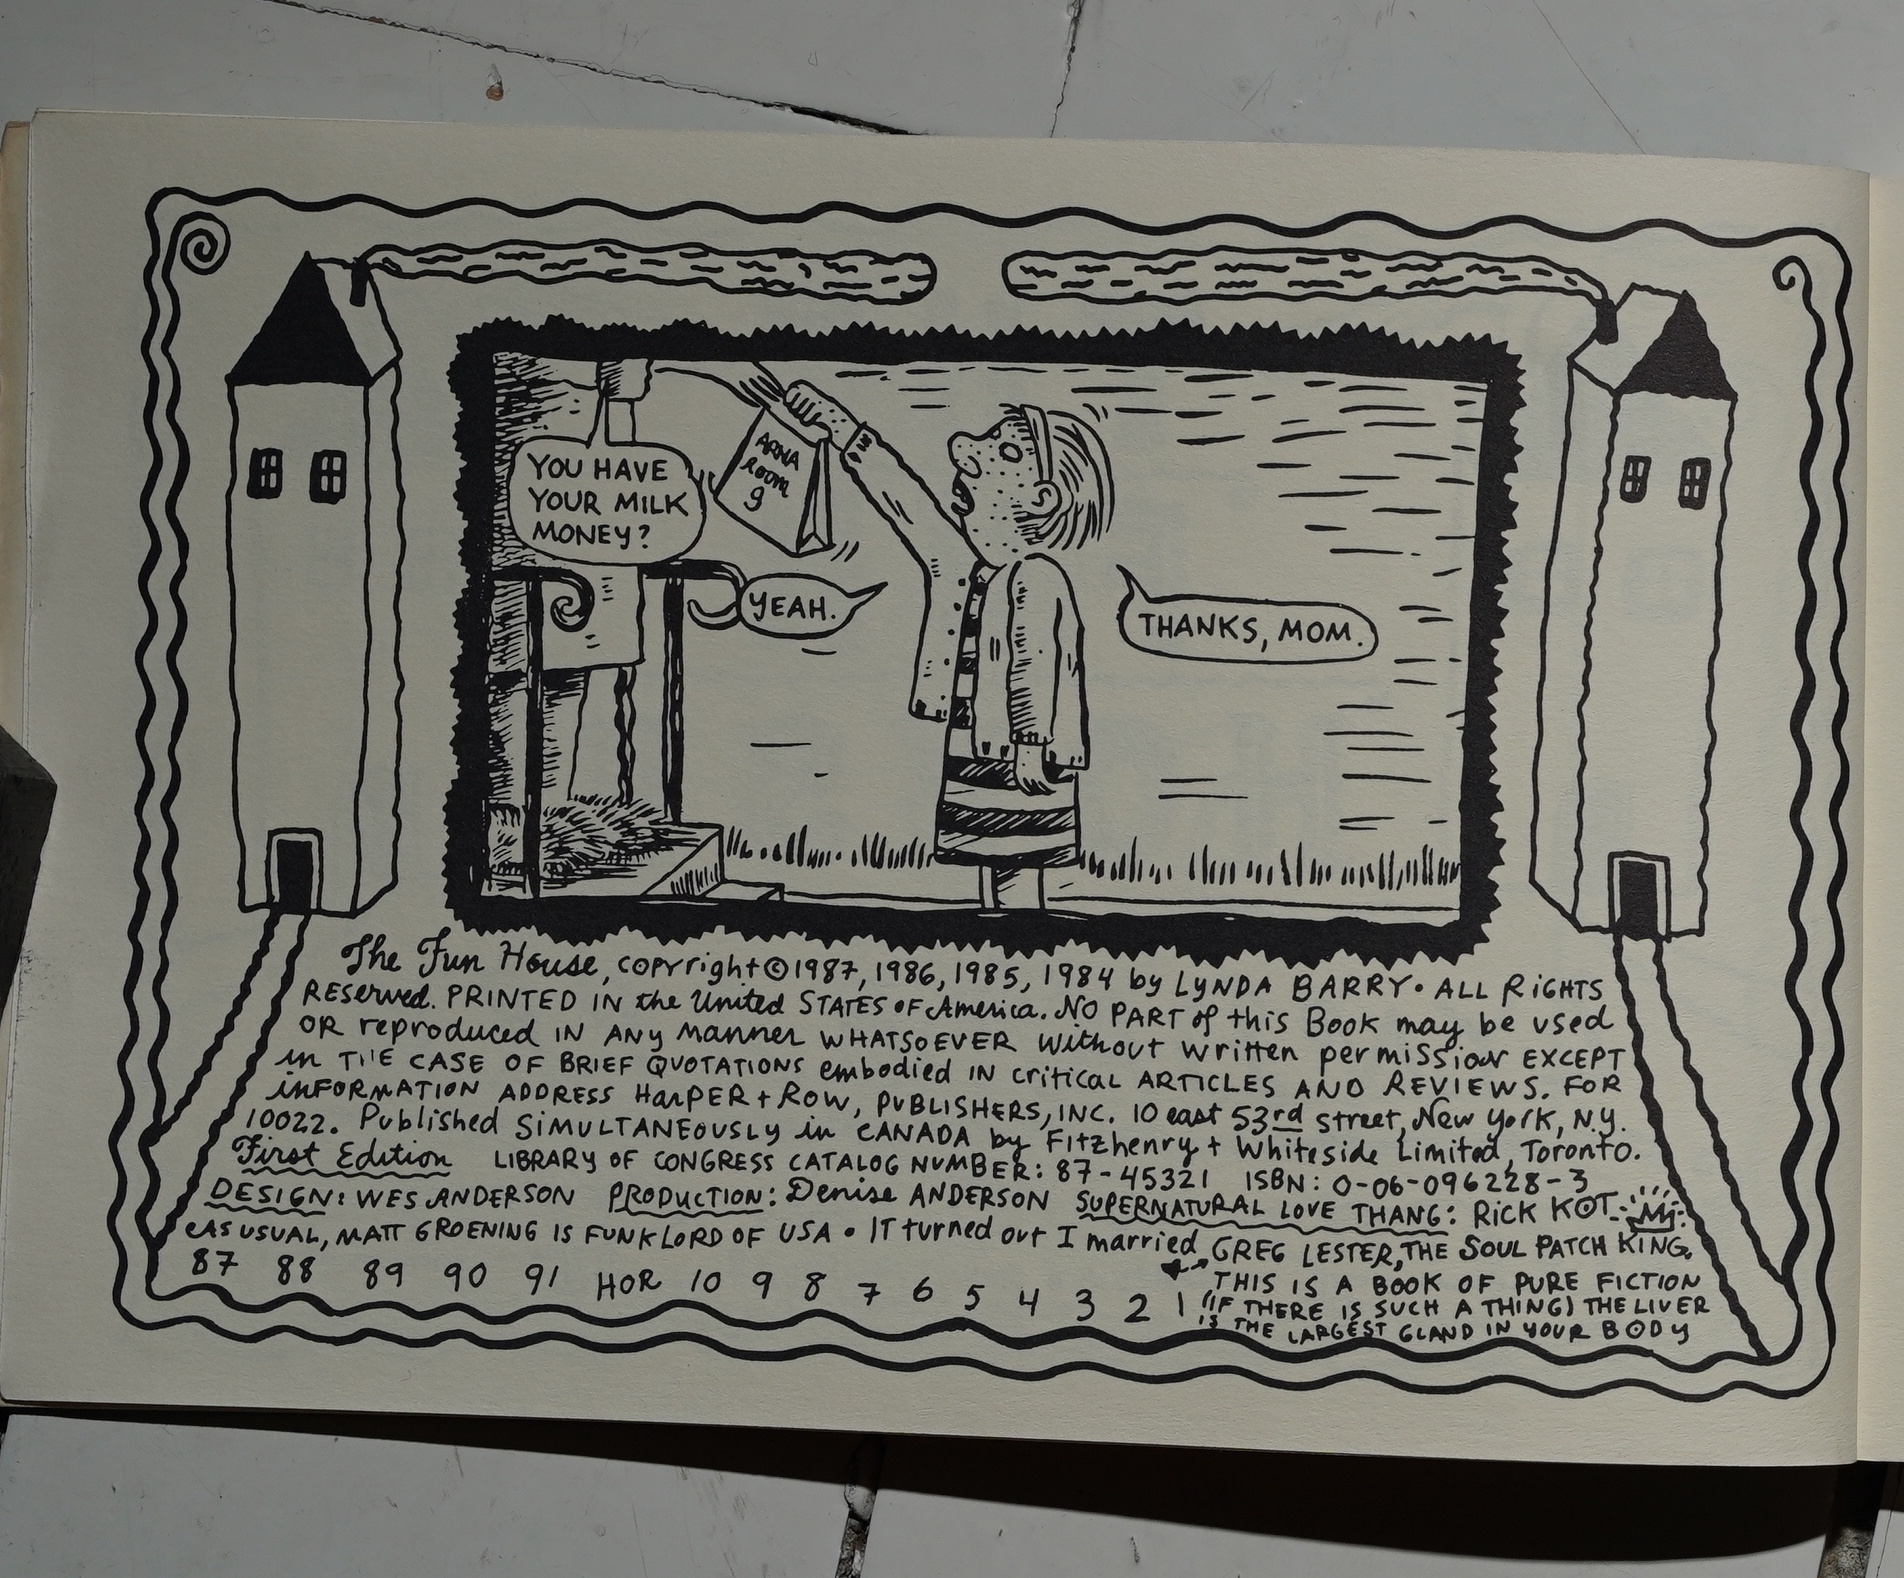 YOU HAVE
YOUR MILK
MONEY?
ARNA
Room
9
YEAH.
THANKS, MOM.
The Fun House, copyright © 1987, 1986, 1985, 1984 by LYNDA BARRY • ALL RiGHTS
RESERved. PRINTED IN the United STATES OF America. NO PART of this Book may be used
OR reproduced IN ANy manner WHATSOEVER without written permission EXCEPT
in THE CASE OF BRIEF QUOTATIONS embodied IN criticAL ARTICLES AND REVIEWS. FOR
inFORMATION ADDRESS HarPER + Row, PUBLISHERS, INC. 10 east 53rd Street, New York, N.Y.
10022. Published SiMULTANEOUSLy in CANADA by Fitzhenry + Whiteside Limited, Toronto.
First Edition LIBRARY OF CONGRESS CATALOG NUMBER: 87-45321 ISBN: 0-06-096228-3
DESIGN: WES ANDERSON PRODUCTION: Denise ANDERSON SUPERNATURAL LOVE THANG: RiCK KOT
AS USUAL, MATT GROENING IS FUNKLORD OF USA • IT turned out I married GREG LESTER, THE SOUL PATCH KING.
87 88 89 90 91 HOR 10 9 8 7 6 5 4 3 2 1
THIS IS A BOOK OF PURE FICTION
(IF THERE IS SUCH A THING) THE LIVER
IS THE LARGEST GLAND IN YOUR BODY